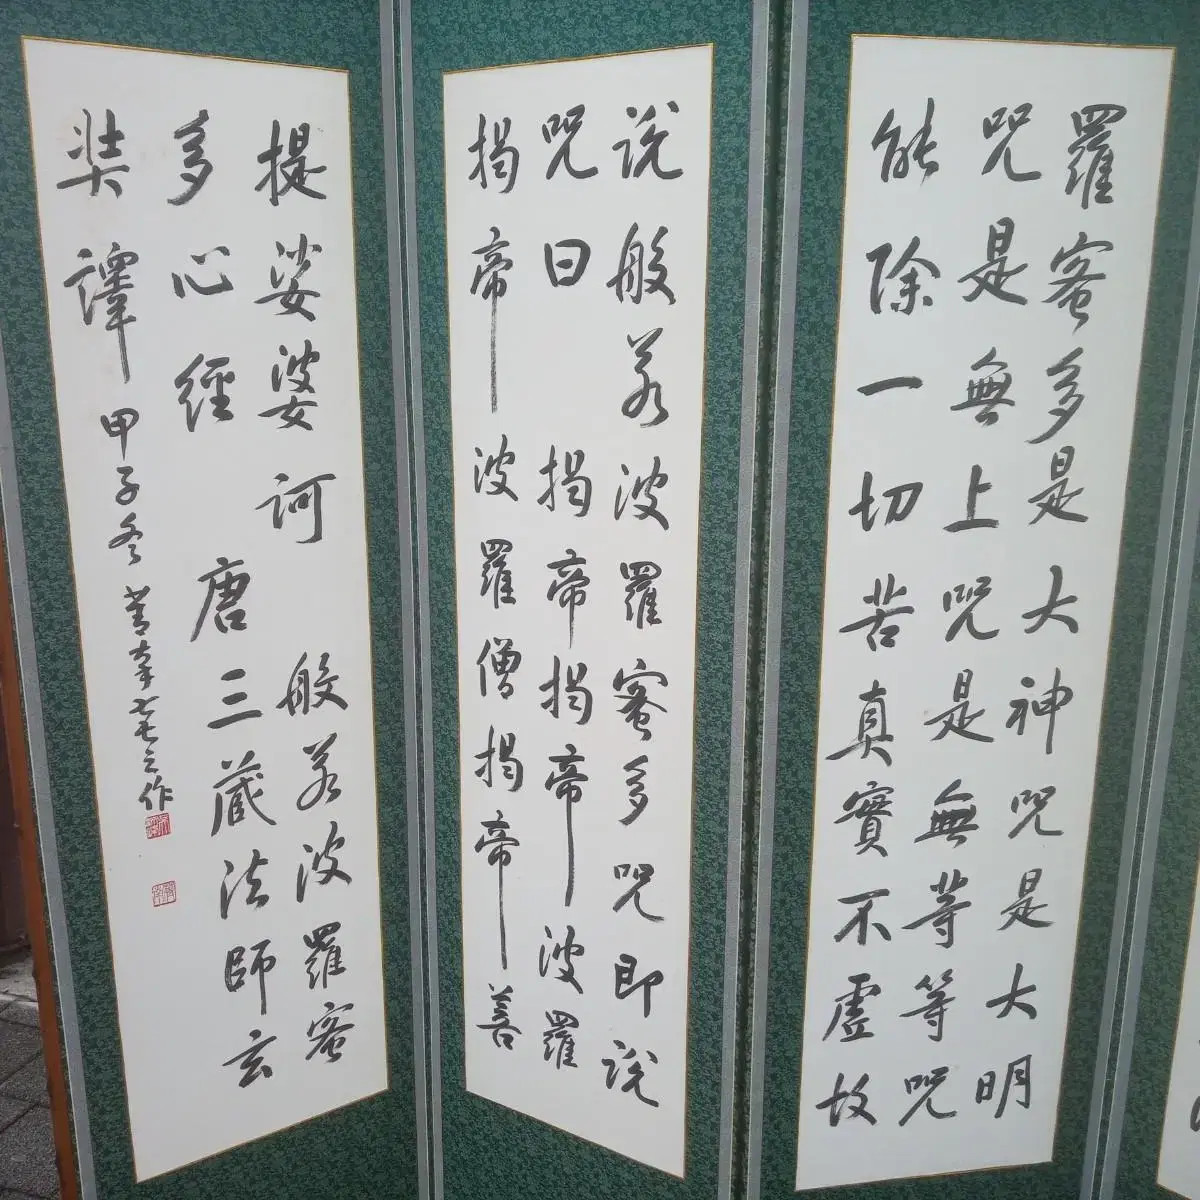 羅蜜多是大神咒是大明
咒是無上咒是無等等咒
能除一切苦真實不虛故
說般若波羅蜜多咒即說
咒曰 揭帝揭帝波羅
揭帝波羅僧揭帝菩
提娑婆訶 般若波羅蜜
多心經 唐三藏法師玄
奘譯 甲子冬
作